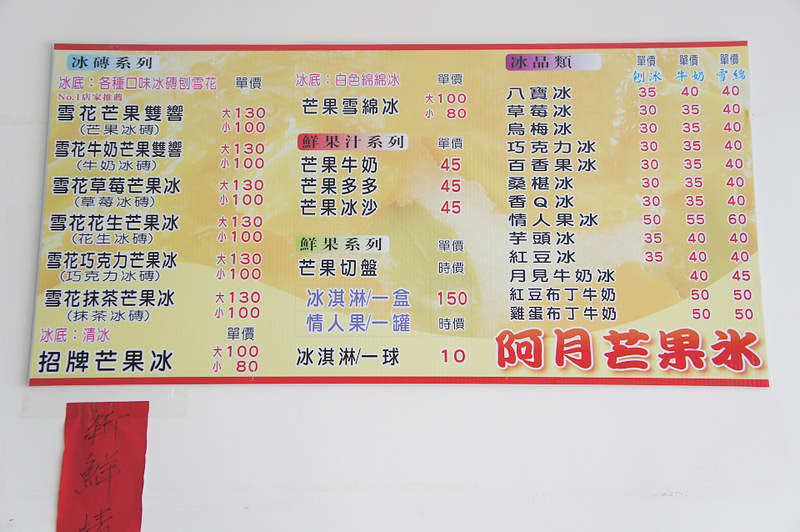 冰磚系列
冰底：各種口味冰磚刨雪花 單價
No.1店家推薦
雪花芒果雙響 大130
(芒果冰磚) 小100
雪花牛奶芒果雙響 大130
(牛奶冰磚) 小100
雪花草莓芒果冰 大130
(草莓冰磚) 小100
雪花花生芒果冰 大130
(花生冰磚) 小100
雪花巧克力芒果冰 大130
(巧克力冰磚) 小100
雪花抹茶芒果冰 大130
(抹茶冰磚) 小100
冰底：清冰 單價
招牌芒果冰 大100
小 80
冰底：白色綿綿冰 單價
芒果雪綿冰 大100
小 80
鮮果汁系列 單價
芒果牛奶 45
芒果多多 45
芒果冰沙 45
鮮果系列 單價
芒果切盤 時價
冰淇淋/一盒 150
情人果/一罐 時價
冰淇淋/一球 10
冰品類 單價 單價 單價
刨冰 牛奶 雪綿
八寶冰 35 40 40
草莓冰 30 35 40
烏梅冰 30 35 40
巧克力冰 30 35 40
百香果冰 30 35 40
桑椹冰 30 35 40
香Q冰 30 35 40
情人果冰 50 55 60
芋頭冰 35 40 40
紅豆冰 35 40 40
月見牛奶冰 40 45
紅豆布丁牛奶 50 50
雞蛋布丁牛奶 50 50
阿月芒果冰
新鮮